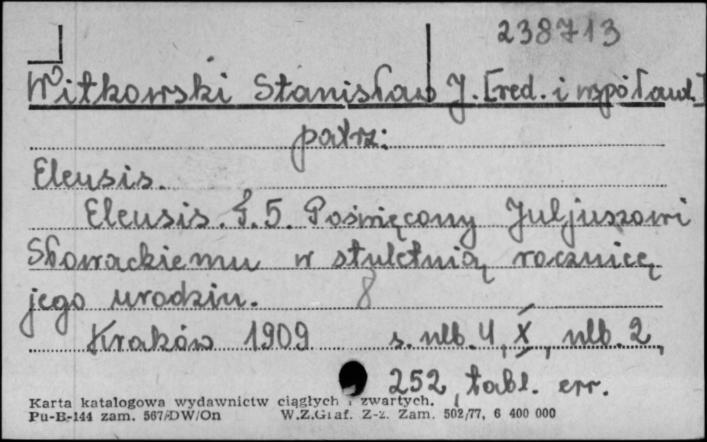 238713
Witkowski Stanisław J. [red. i współaut.]
patrz:
Eleusis.
Eleusis. T. 5. Poświęcony Juljuszowi
Słowackiemu w stuletnią rocznicę
jego urodzin. 8
Kraków 1909 s. nlb. 4, X, nlb. 2,
252, tabl. err.
Karta katalogowa wydawnictw ciągłych i zwartych.
Pu-B-144 zam. 567/DW/On W.Z.Graf. Z-z. Zam. 502/77, 6 400 000